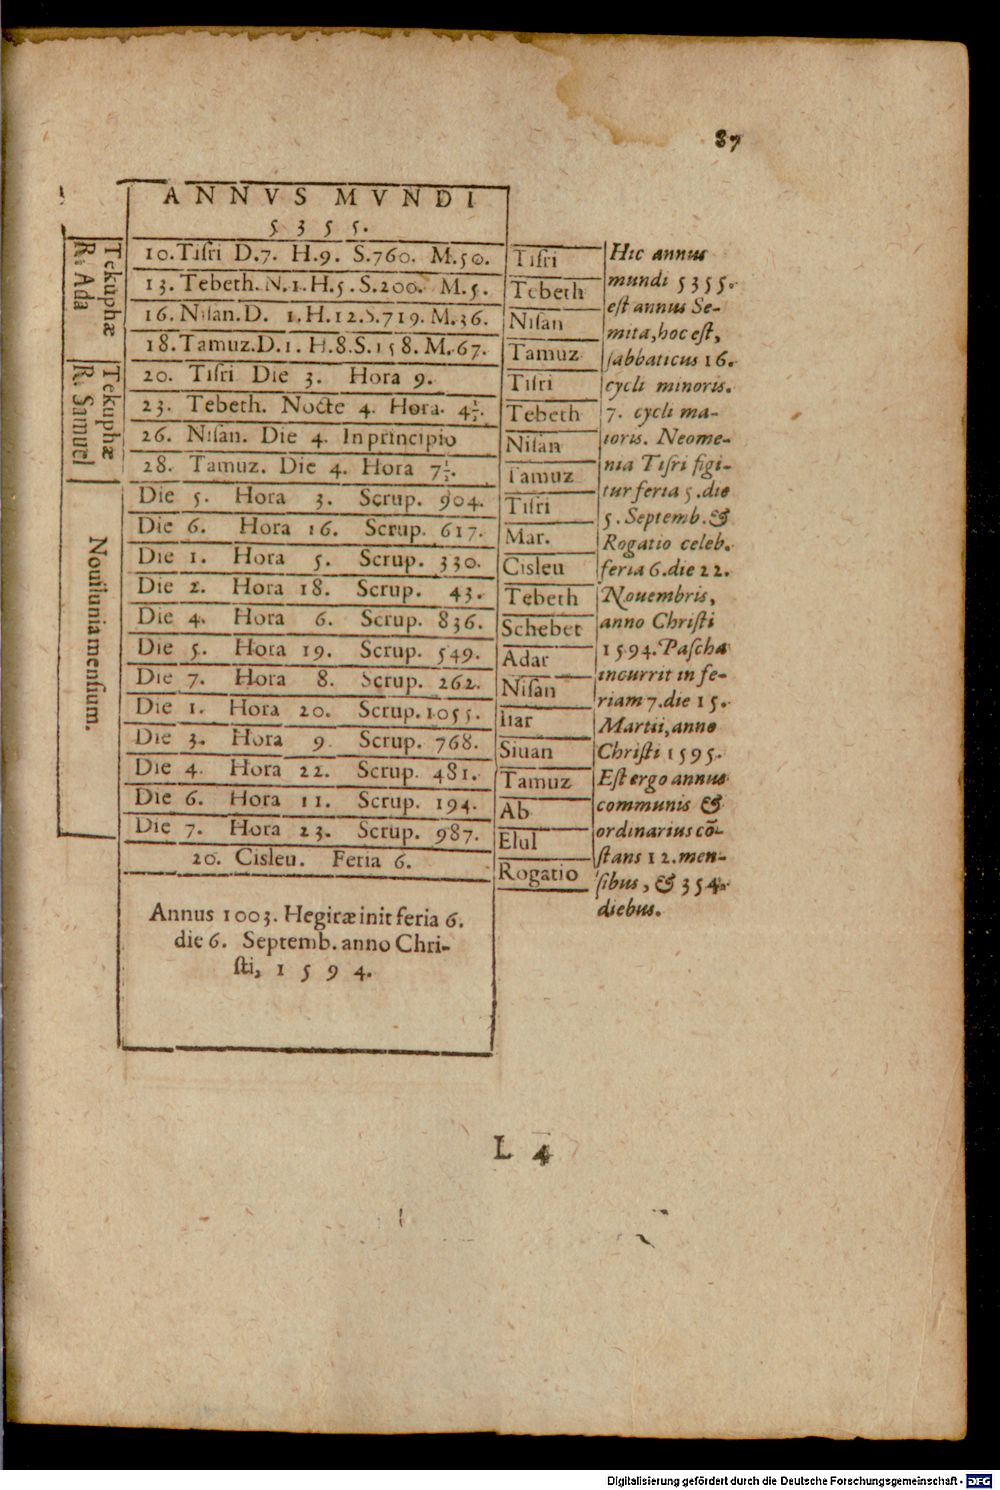 87
ANNVS MVNDI
5355.
Tekuphæ
R. Ada
10. Tiſri D.7. H.9. S.760. M.50. Tiſri
13. Tebeth. N.1. H.5. S.200. M.5. Tebeth
16. Niſan. D. 1. H.12. S.719. M.36. Niſan
18. Tamuz. D.1. H.8. S.158. M.67. Tamuz
Tekuphæ
R. Samuel
20. Tiſri Die 3. Hora 9. Tiſri
23. Tebeth. Nocte 4. Hora. 4½. Tebeth
26. Niſan. Die 4. In principio Niſan
28. Tamuz. Die 4. Hora 7½. Tamuz
Nouilunia menſium.
Die 5. Hora 3. Scrup. 904. Tiſri
Die 6. Hora 16. Scrup. 617. Mar.
Die 1. Hora 5. Scrup. 330. Cisleu
Die 2. Hora 18. Scrup. 43. Tebeth
Die 4. Hora 6. Scrup. 836. Schebet
Die 5. Hora 19. Scrup. 549. Adar
Die 7. Hora 8. Scrup. 262. Niſan
Die 1. Hora 20. Scrup. 1055. Iiar
Die 3. Hora 9. Scrup. 768. Siuan
Die 4. Hora 22. Scrup. 481. Tamuz
Die 6. Hora 11. Scrup. 194. Ab
Die 7. Hora 23. Scrup. 987. Elul
20. Cisleu. Feria 6. Rogatio
Annus 1003. Hegiræ init feria 6.
die 6. Septemb. anno Chri-
ſti, 1594.
Hic annus
mundi 5355.
eſt annus Se-
mita, hoc eſt,
ſabbaticus 16.
cycli minoris.
7. cycli ma-
ioris. Neome-
nia Tiſri figi-
tur feria 5. die
5. Septemb. &
Rogatio celeb.
feria 6. die 22.
Nouembris,
anno Chriſti
1594. Paſcha
incurrit in fe-
riam 7. die 15.
Martii, anno
Chriſti 1595.
Eſt ergo annus
communis &
ordinarius cō-
ſtans 12. men-
ſibus, & 354.
diebus.
L 4
Digitalisierung gefördert durch die Deutsche Forschungsgemeinschaft - DFG